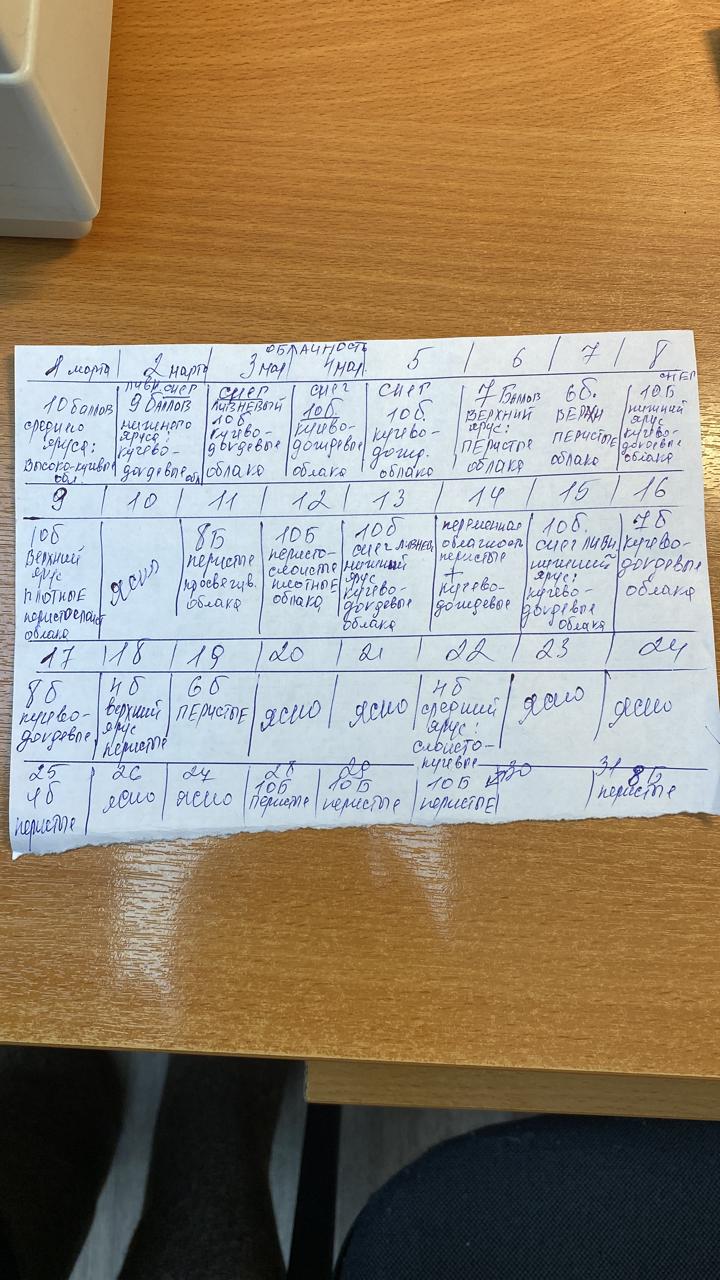 ОБЛАЧНОСТЬ
1 марта | 2 марта | 3 мар | 4 мар | 5 | 6 | 7 | 8
10 баллов
среднего
яруса:
высоко-кучевые
обл.
ливн. снег
9 баллов
нижнего
яруса:
кучево-
дождевые обл
снег
ливневый
10б.
кучево-
дождевые
облака
снег
10б.
кучево-
дождевые
облака
снег
10б.
кучево-
дожд.
облака
7 баллов
верхний
ярус:
перистые
облака
6б.
верхн
перистые
облака
снег
10б
нижний
ярус
кучево-
дождевые
облака
9 | 10 | 11 | 12 | 13 | 14 | 15 | 16
10б
верхний
ярус
плотные
перистослоист
облака
ясно
8Б
перистые
просвечив.
облака
10Б
перисто-
слоистые
плотные
облака
10б
снег ливнев
нижний
ярус
кучево-
дождевые
облака
переменная
облачность
перистые
+
кучево-
дождевые
10б.
снег ливн.
нижний
ярус:
кучево-
дождевые
облака
7б
кучево-
дождевые
облака
17 | 18 | 19 | 20 | 21 | 22 | 23 | 24
8б
кучево-
дождевые
4б
верхний
ярус
перистые
6б
перистые
ясно
ясно
4б
средний
ярус:
слоисто-
кучевые
ясно
ясно
25
4б
перистые
26
ясно
27
ясно
28
10Б
перистые
29
10Б
перистые
30
10Б
перистые
31
8Б
перистые